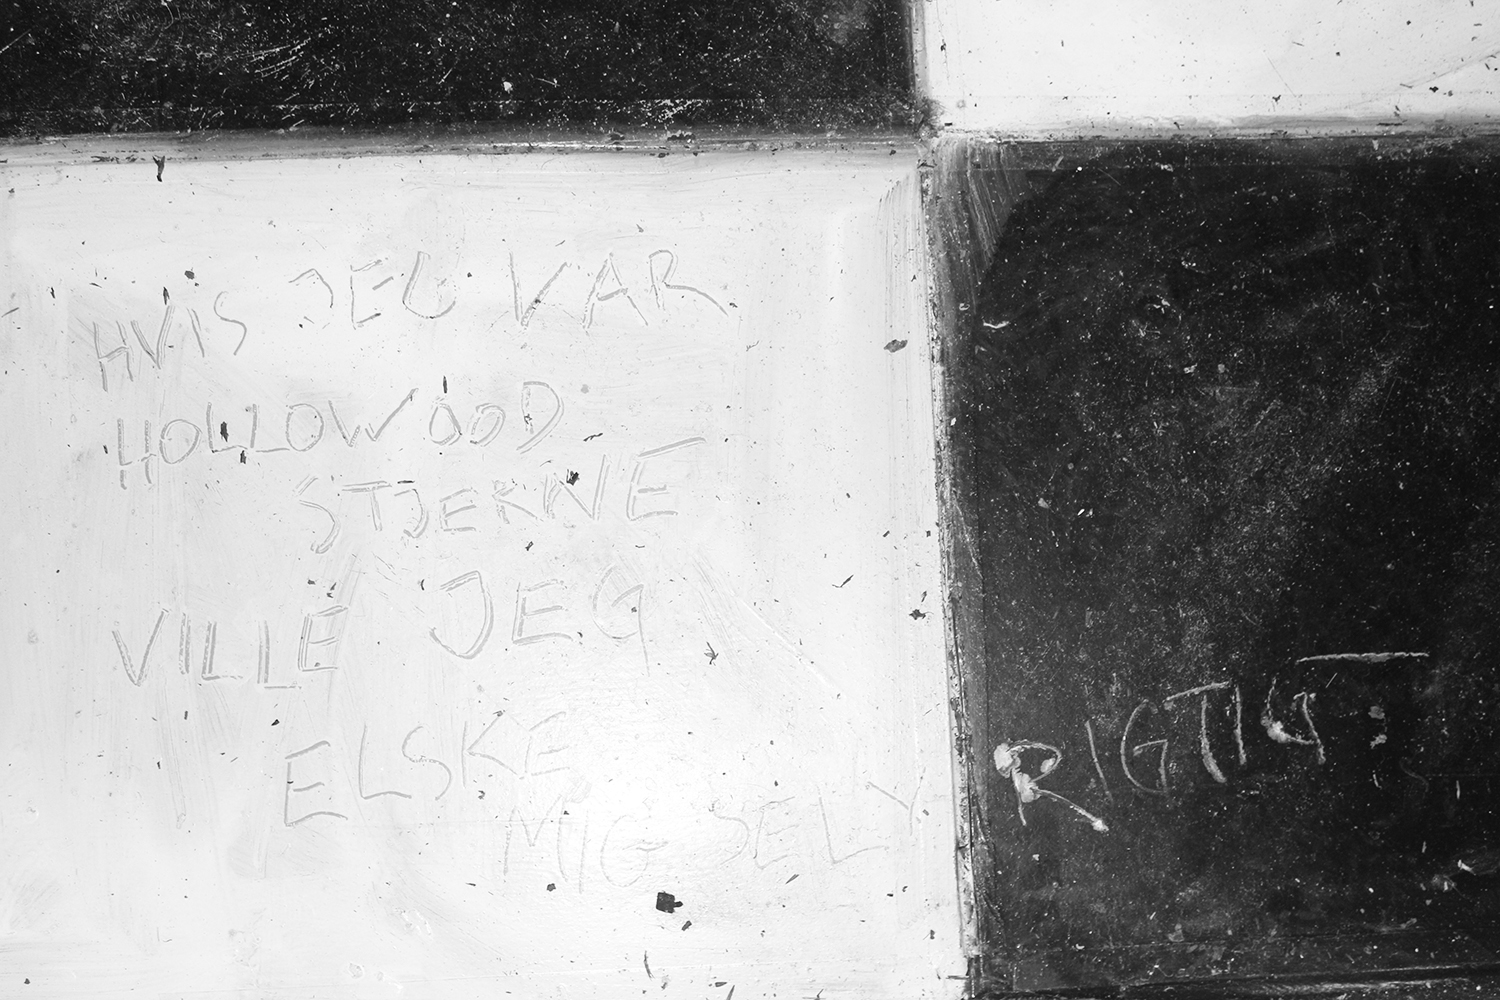 HVIS JEG VAR
HOLLOWOOD
STJERNE
VILLE JEG
ELSKE
MIG SELV
RIGTIGT